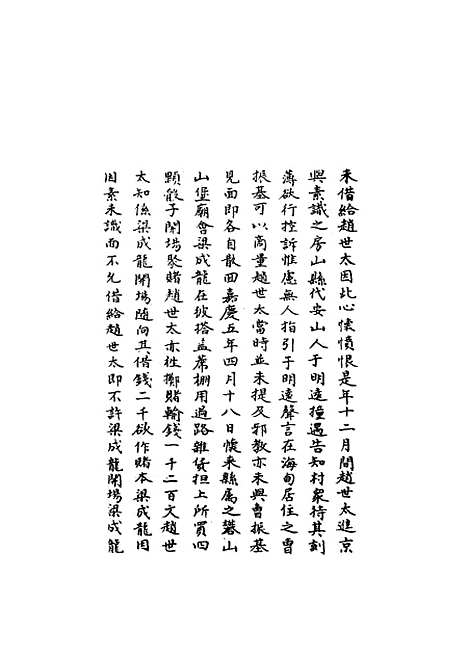 未借給趙世太因此心懷憤恨是年十二月間趙世太進京
與素識之房山縣代安山人于明遠撞遇告知村衆待其刻
薄欲行控訴惟慮無人指引于明遠聲言在海甸居住之曹
振基可以商量趙世太當時並未提及邪教亦未與曹振基
見面即各自散回嘉慶五年四月十八日懷柔縣屬之磐山
山堡廟會梁成龍在彼搭盖蓆棚用過路雜貨担上所買四
顆骰子開場聚賭趙世太亦往擲賭輸錢一千二百文趙世
太知係梁成龍開場隨向其借錢二千欲作賭本梁成龍因
因素未識面不允借給趙世太即不許梁成龍開場梁成龍